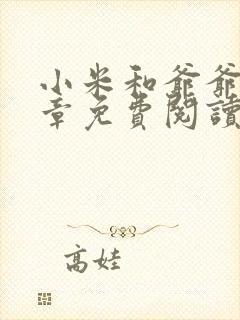 小米和爺爺
章免費閱讀
高娃